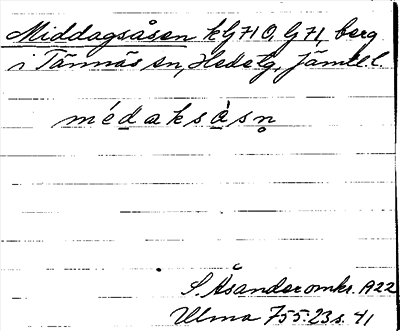 Middagsåsen k G 710, G 71, berg
i Tännäs sn, Hede tg, Jämtl. l.
médaksàsn̥
S. Åsander omkr. 1922
Ulma 755:23 s. 41